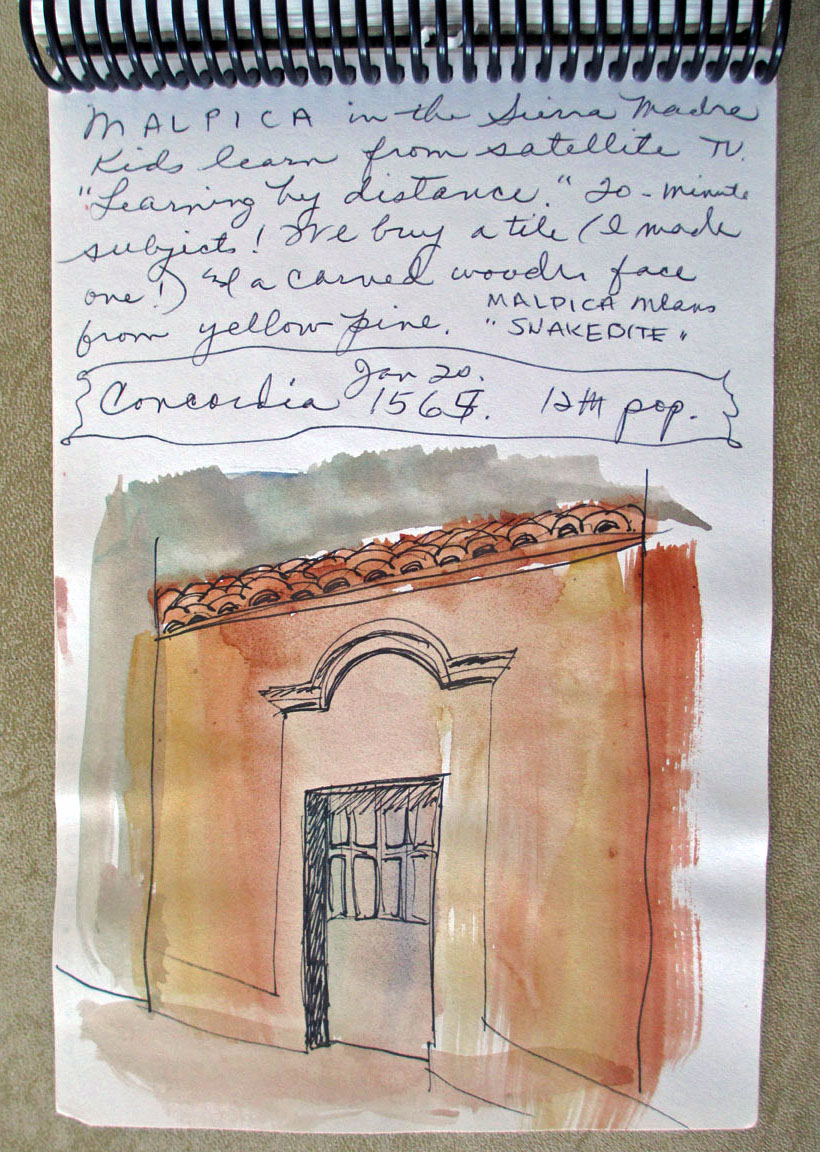 MALPICA in the Sierra Madre
Kids learn from satellite TV.
"Learning by distance." 20-minute
subjects! We buy a tile (I made
one!) & a carved wooden face
from yellow pine. MALPICA means
"SNAKEBITE"
Jan 20.
Concordia 1565. 12th pop.